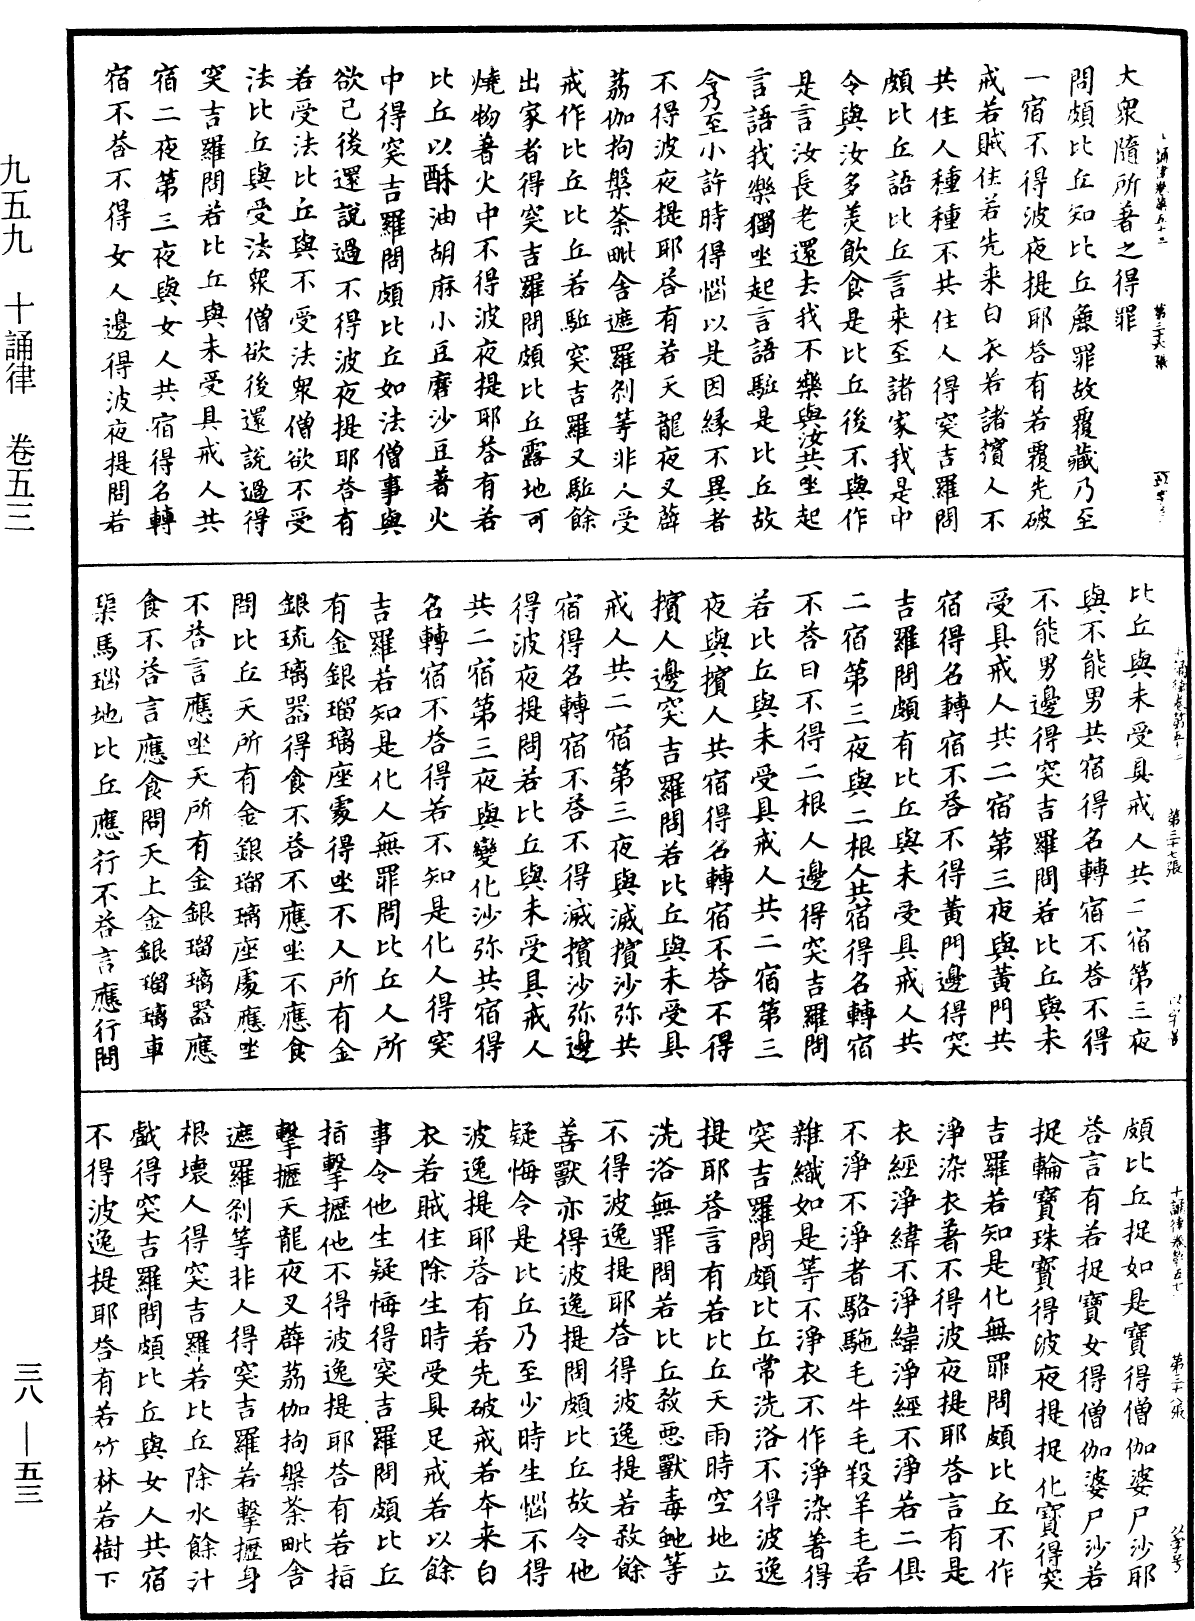 大衆隨所著之得罪
問頗比丘知比丘麁罪故覆藏乃至
一宿不得波夜提耶荅有若覆先破
戒若賊住若先来白衣若諸擯人不
共住人種種不共住人得突吉羅問
頗比丘語比丘言来至諸家我是中
令與汝多美飲食是比丘後不與作
是言汝長老還去我不樂與汝共坐起
言語我樂獨坐起言語駈是比丘故
令乃至小許時得惱以是因縁不異者
不得波夜提耶荅有若天龍夜叉薜
荔伽拘槃荼毗舍遮羅剎等非人受
戒作比丘比丘若駈突吉羅又駈餘
出家者得突吉羅問頗比丘露地可
燒物著火中不得波夜提耶荅有若
比丘以酥油胡麻小豆磨沙豆著火
中得突吉羅問頗比丘如法僧事與
欲已後還說過不得波夜提耶荅有
若受法比丘與不受法衆僧欲不受
法比丘與受法衆僧欲後還說過得
突吉羅問若比丘與未受具戒人共
宿二夜第三夜與女人共宿得名轉
宿不荅不得女人邊得波夜提問若
比丘與未受具戒人共二宿第三夜
與不能男共宿得名轉宿不荅不得
不能男邊得突吉羅問若比丘與未
受具戒人共二宿第三夜與黃門共
宿得名轉宿不荅不得黃門邊得突
吉羅問頗有比丘與未受具戒人共
二宿第三夜與二根人共宿得名轉宿
不荅曰不得二根人邊得突吉羅問
若比丘與未受具戒人共二宿第三
夜與擯人共宿得名轉宿不荅不得
擯人邊突吉羅問若比丘與未受具
戒人共二宿第三夜與滅擯沙弥共
宿得名轉宿不荅不得滅擯沙弥邊
得波夜提問若比丘與未受具戒人
共二宿第三夜與變化沙弥共宿得
名轉宿不荅得若不知是化人得突
吉羅若知是化人無罪問比丘人所
有金銀瑠璃座處得坐不人所有金
銀琉璃器得食不荅不應坐不應食
問比丘天所有金銀瑠璃座處應坐
不荅言應坐天所有金銀瑠璃器應
食不荅言應食問天上金銀瑠璃車
璖馬瑙地比丘應行不荅言應行問
頗比丘捉如是寶得僧伽婆尸沙耶
荅言有若捉寶女得僧伽婆尸沙若
捉輪寶珠寶得波夜提捉化寶得突
吉羅若知是化無罪問頗比丘不作
淨染衣著不得波夜提耶荅言有是
衣經淨緯不淨緯淨經不淨若二俱
不淨不淨者駱駞毛牛毛羖羊毛若
雜織如是等不淨衣不作淨染著得
突吉羅問頗比丘常洗浴不得波逸
提耶荅言有若比丘天雨時空地立
洗浴無罪問若比丘敎惡獸毒虵等
不得波逸提耶荅得波逸提若敎餘
善獸亦得波逸提問頗比丘故令他
疑悔令是比丘乃至少時生惱不得
波逸提耶荅有若先破戒若本来白
衣若賊住除生時受具足戒若以餘
事令他生疑悔得突吉羅問頗比丘
指擊攊他不得波逸提耶荅有若指
擊攊天龍夜叉薜荔伽拘槃荼毗舍
遮羅剎等非人得突吉羅若擊攊身
根壊人得突吉羅若比丘除水餘汁
戲得突吉羅問頗比丘與女人共宿
不得波逸提耶荅有若竹林若樹下
九五九 十誦律 卷五三
三八 — 五三
第三十六張
第三十七張
第三十八張